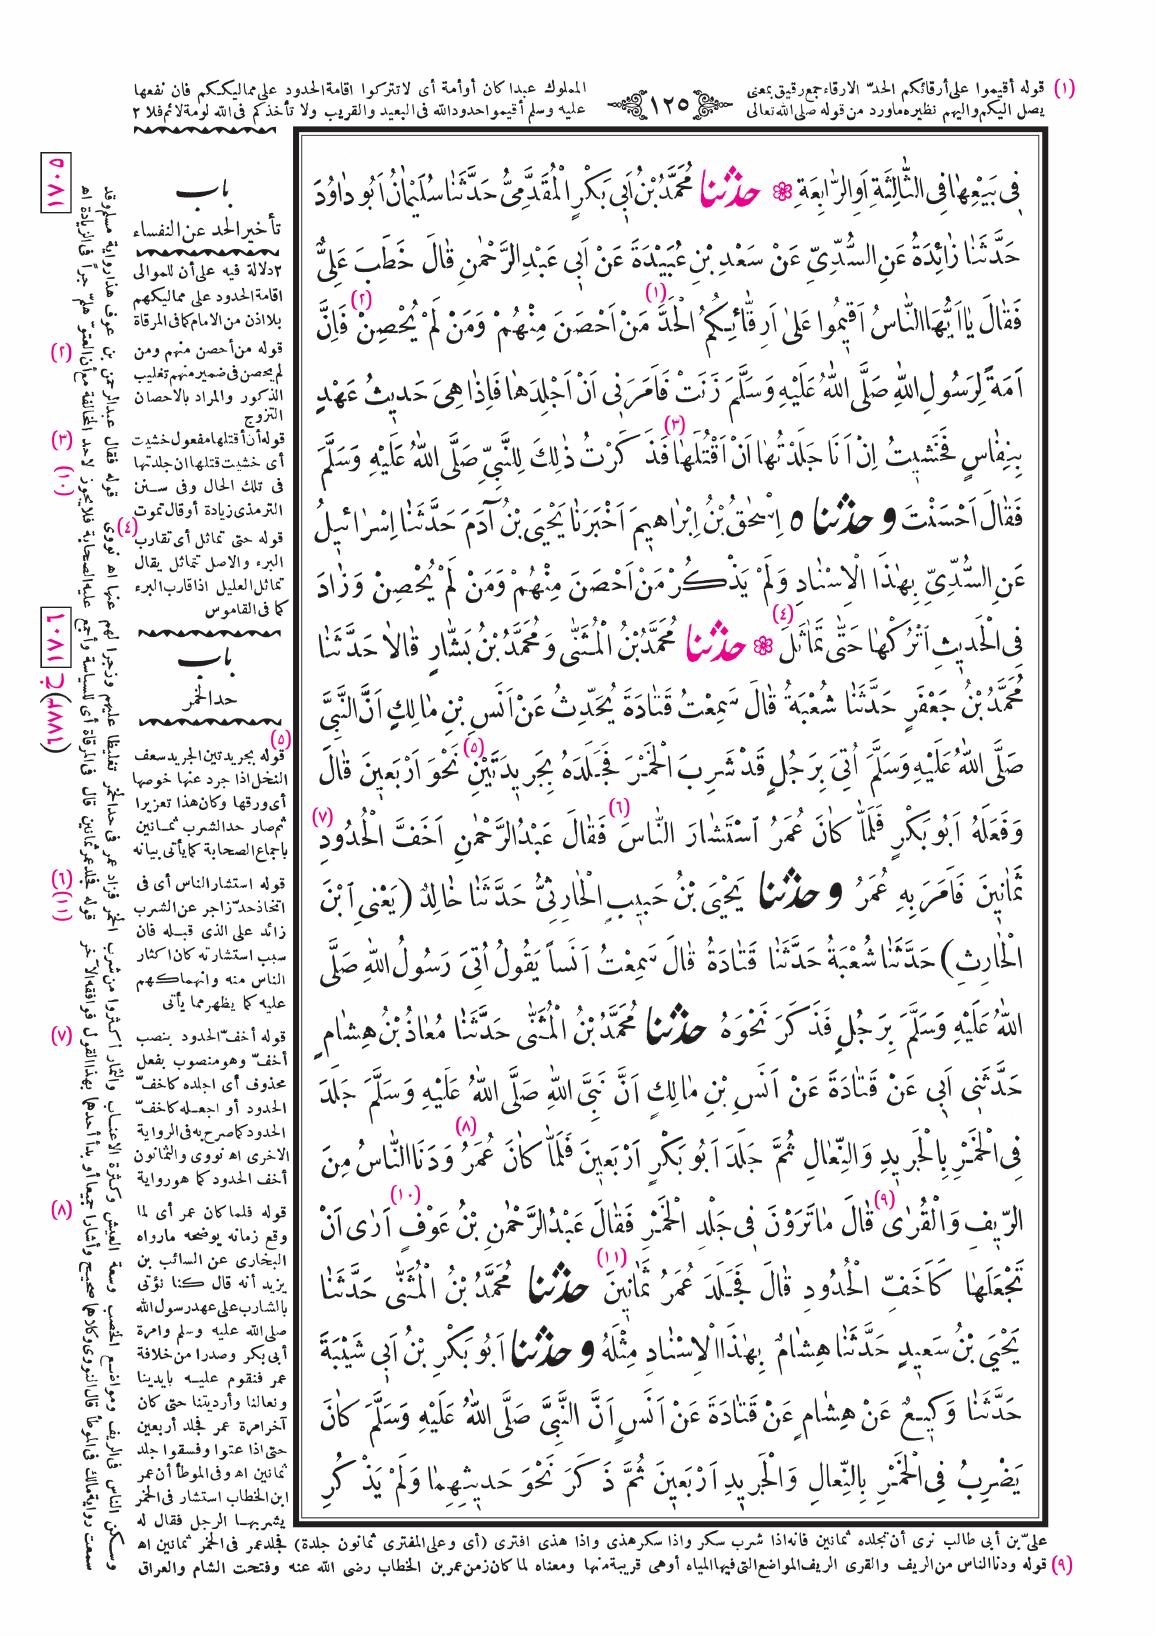 (١) قوله أقيموا على أرقائكم الحدّ الارقاء جمع رقيق بمعنى
يصل اليكم واليهم نظيره ماورد من قوله صلى الله تعالى
١٢٥
المملوك عبدا كان أو أمة أى لا تتركوا اقامة الحدود على مماليككم فان نفعها
عليه وسلم أقيموا حدود الله فى البعيد والقريب ولا تأخذكم فى الله لومة لائم فلا ٢
فِى بَيْعِهَا فِى الثَّالِثَةِ اَوِ الرَّابِعَةِ ❁ حَدَّثَنَا مُحَمَّدُ بْنُ اَبِى بَكْرٍ الْمُقَدَّمِىُّ حَدَّثَنَا سُلَيْمَانُ اَبُو دَاوُدَ
حَدَّثَنَا زَائِدَةُ عَنِ السُّدِّىِّ عَنْ سَعْدِ بْنِ عُبَيْدَةَ عَنْ اَبِى عَبْدِ الرَّحْمٰنِ قَالَ خَطَبَ عَلِىٌّ
فَقَالَ يَا اَيُّهَا النَّاسُ اَقِيمُوا عَلىٰ اَرِقَّائِكُمُ (١) الْحَدَّ مَنْ اَحْصَنَ مِنْهُمْ وَمَنْ لَمْ يُحْصِنْ (٢) فَاِنَّ
اَمَةً لِرَسُولِ اللهِ صَلَّى اللهُ عَلَيْهِ وَسَلَّمَ زَنَتْ فَاَمَرَنِى اَنْ اَجْلِدَهَا فَاِذَا هِىَ حَدِيثُ عَهْدٍ
بِنِفَاسٍ فَخَشِيتُ اِنْ اَنَا جَلَدْتُهَا اَنْ اَقْتُلَهَا (٣) فَذَكَرْتُ ذٰلِكَ لِلنَّبِىِّ صَلَّى اللهُ عَلَيْهِ وَسَلَّمَ
فَقَالَ اَحْسَنْتَ وحَدَّثَنَا ٥ اِسْحٰقُ بْنُ اِبْرَاهِيمَ اَخْبَرَنَا يَحْيَى بْنُ آدَمَ حَدَّثَنَا اِسْرَائِيلُ
عَنِ السُّدِّىِّ بِهٰذَا الْاِسْنَادِ وَلَمْ يَذْكُرْ مَنْ اَحْصَنَ مِنْهُمْ وَمَنْ لَمْ يُحْصِنْ وَزَادَ
فِى الْحَدِيثِ اتْرُكْهَا حَتّٰى تَمَاثَلَ (٤) ❁ حَدَّثَنَا مُحَمَّدُ بْنُ الْمُثَنّٰى وَمُحَمَّدُ بْنُ بَشَّارٍ قَالَا حَدَّثَنَا
مُحَمَّدُ بْنُ جَعْفَرٍ حَدَّثَنَا شُعْبَةُ قَالَ سَمِعْتُ قَتَادَةَ يُحَدِّثُ عَنْ اَنَسِ بْنِ مَالِكٍ اَنَّ النَّبِىَّ
صَلَّى اللهُ عَلَيْهِ وَسَلَّمَ اُتِىَ بِرَجُلٍ قَدْ شَرِبَ الْخَمْرَ فَجَلَدَهُ بِجَرِيدَتَيْنِ (٥) نَحْوَ اَرْبَعِينَ قَالَ
وَفَعَلَهُ اَبُو بَكْرٍ فَلَمَّا كَانَ عُمَرُ اسْتَشَارَ النَّاسَ (٦) فَقَالَ عَبْدُ الرَّحْمٰنِ اَخَفَّ الْحُدُودِ (٧)
ثَمَانِينَ فَاَمَرَ بِهِ عُمَرُ وحَدَّثَنَا يَحْيَى بْنُ حَبِيبٍ الْحَارِثِىُّ حَدَّثَنَا خَالِدٌ (يَعْنِى ابْنَ
الْحَارِثِ) حَدَّثَنَا شُعْبَةُ حَدَّثَنَا قَتَادَةُ قَالَ سَمِعْتُ اَنَساً يَقُولُ اُتِىَ رَسُولُ اللهِ صَلَّى
اللهُ عَلَيْهِ وَسَلَّمَ بِرَجُلٍ فَذَكَرَ نَحْوَهُ حَدَّثَنَا مُحَمَّدُ بْنُ الْمُثَنّٰى حَدَّثَنَا مُعَاذُ بْنُ هِشَامٍ
حَدَّثَنِى اَبِى عَنْ قَتَادَةَ عَنْ اَنَسِ بْنِ مَالِكٍ اَنَّ نَبِىَّ اللهِ صَلَّى اللهُ عَلَيْهِ وَسَلَّمَ جَلَدَ
فِى الْخَمْرِ بِالْجَرِيدِ وَالنِّعَالِ ثُمَّ جَلَدَ اَبُو بَكْرٍ اَرْبَعِينَ فَلَمَّا كَانَ عُمَرُ (٨) وَدَنَا النَّاسُ مِنَ
الرِّيفِ وَالْقُرٰى (٩) قَالَ مَا تَرَوْنَ فِى جَلْدِ الْخَمْرِ فَقَالَ عَبْدُ الرَّحْمٰنِ بْنُ عَوْفٍ (١٠) اَرٰى اَنْ
تَجْعَلَهَا كَاَخَفِّ الْحُدُودِ قَالَ فَجَلَدَ عُمَرُ ثَمَانِينَ (١١) حَدَّثَنَا مُحَمَّدُ بْنُ الْمُثَنّٰى حَدَّثَنَا
يَحْيَى بْنُ سَعِيدٍ حَدَّثَنَا هِشَامٌ بِهٰذَا الْاِسْنَادِ مِثْلَهُ وحَدَّثَنَا اَبُو بَكْرِ بْنُ اَبِى شَيْبَةَ
حَدَّثَنَا وَكِيعٌ عَنْ هِشَامٍ عَنْ قَتَادَةَ عَنْ اَنَسٍ اَنَّ النَّبِىَّ صَلَّى اللهُ عَلَيْهِ وَسَلَّمَ كَانَ
يَضْرِبُ فِى الْخَمْرِ بِالنِّعَالِ وَالْجَرِيدِ اَرْبَعِينَ ثُمَّ ذَكَرَ نَحْوَ حَدِيثِهِمَا وَلَمْ يَذْكُرِ
باب
تأخير الحد عن النفساء
٢ دلالة فيه على أن للموالى
اقامة الحدود على مماليكهم
بلا اذن من الامام كما فى المرقاة
(٢) قوله من أحصن منهم ومن
لم يحصن فى ضمير منهم تغليب
الذكور والمراد بالاحصان
التزوج
(٣) قوله أن أقتلها مفعول خشيت
أى خشيت قتلها ان جلدتها
فى تلك الحال وفى سنن
الترمذى زيادة أو قال تموت
(٤) قوله حتى تماثل أى تقارب
البرء والاصل تتماثل يقال
تماثل العليل اذا قارب البرء
كما فى القاموس
باب
حد الخمر
(٥) قوله بجريدتين الجريد سعف
النخل اذا جرد عنها خوصها
أى ورقها وكان هذا تعزيرا
ثم صار حد الشرب ثمانين
باجماع الصحابة كما يأتى بيانه
(٦) قوله استشار الناس أى فى
اتخاذ حدّ زاجر عن الشرب
زائد على الذى قبله فان
سبب استشارته كان اكثار
الناس منه وانهماكهم
عليه كما يظهر مما يأتى
(٧) قوله أخفّ الحدود بنصب
أخفّ وهو منصوب بفعل
محذوف أى اجلده كاخفّ
الحدود أو اجعله كاخفّ
الحدود كما صرح به فى الرواية
الاخرى اه نووى والثمانون
أخف الحدود كما هو رواية
(٨) قوله فلما كان عمر أى لما
وقع زمانه يوضحه مارواه
البخارى عن السائب بن
يزيد أنه قال كنا نؤتى
بالشارب على عهد رسول الله
صلى الله عليه وسلم وامرة
أبى بكر وصدرا من خلافة
عمر فنقوم عليه بايدينا
ونعالنا وأرديتنا حتى كان
آخر امرة عمر فجلد أربعين
حتى اذا عتوا وفسقوا جلد
ثمانين اه وفى الموطأ أن عمر
ابن الخطاب استشار فى الخمر
يشربها الرجل فقال له
علىّ بن أبى طالب نرى أن تجلده ثمانين فانه اذا شرب سكر واذا سكر هذى واذا هذى افترى (أى وعلى المفترى ثمانون جلدة) فجلد عمر فى الخمر ثمانين اه
(٩) قوله ودنا الناس من الريف والقرى الريف المواضع التى فيها المياه أو هى قريبة منها ومعناه لما كان زمن عمر بن الخطاب رضى الله عنه وفتحت الشام والعراق
وسكن الناس فى الريف ومواضع الخصب وسعة العيش وكثرة الاعناب والثمار أكثروا من شرب الخمر فزاد عمر فى حد الخمر تغليظا عليهم وزجرا لهم عنها اه نووى (١٠) قوله فقال عبد الرحمن بن عوف هذا رواية مسلم وقد
سمعت رواية مالك فى الموطأ قال النووى وكلاهما صحيح وأشارا جميعا أو بدأ أحدهما بهذا القول فوافقه الآخر (١١) قوله فجلد عمر ثمانين قال فى المرقاة أى للسياسة وأجمع عليه الصحابة فلا يجوز لاحد المخالفة مع أن العتوّ هلمّ جراً فى الزيادة اه
٥٠٨١
٦٠٨١
خ (٣٨٨٦)